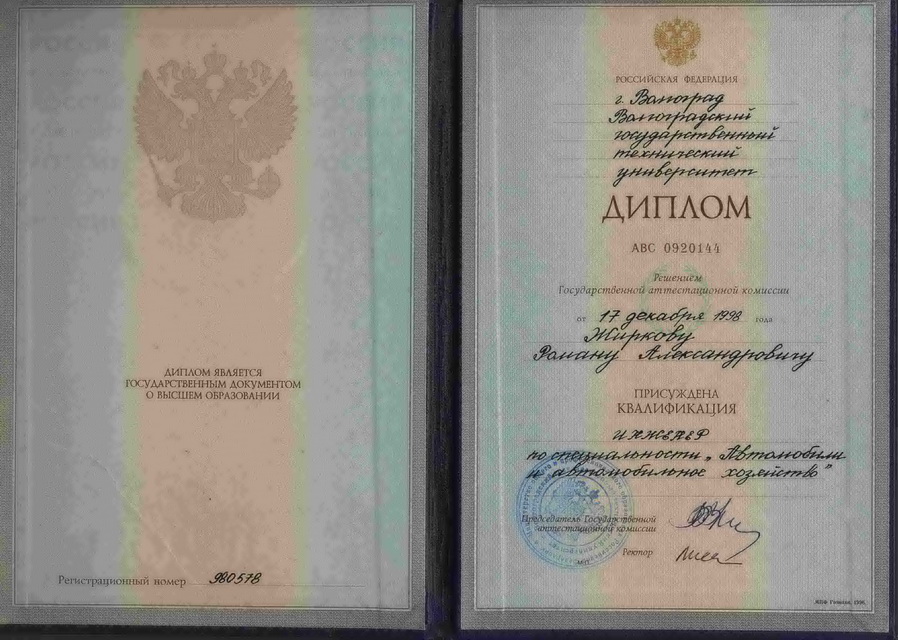 ДИПЛОМ ЯВЛЯЕТСЯ
ГОСУДАРСТВЕННЫМ ДОКУМЕНТОМ
О ВЫСШЕМ ОБРАЗОВАНИИ
Регистрационный номер 980578
РОССИЙСКАЯ ФЕДЕРАЦИЯ
г. Волгоград
Волгоградский
государственный
технический
университет
ДИПЛОМ
АВС 0920144
Решением
Государственной аттестационной комиссии
от 17 декабря 1998 года
Жиркову
Роману Александровичу
ПРИСУЖДЕНА
КВАЛИФИКАЦИЯ
инженер
по специальности „Автомобили
и автомобильное хозяйство"
Председатель Государственной
аттестационной комиссии
Ректор